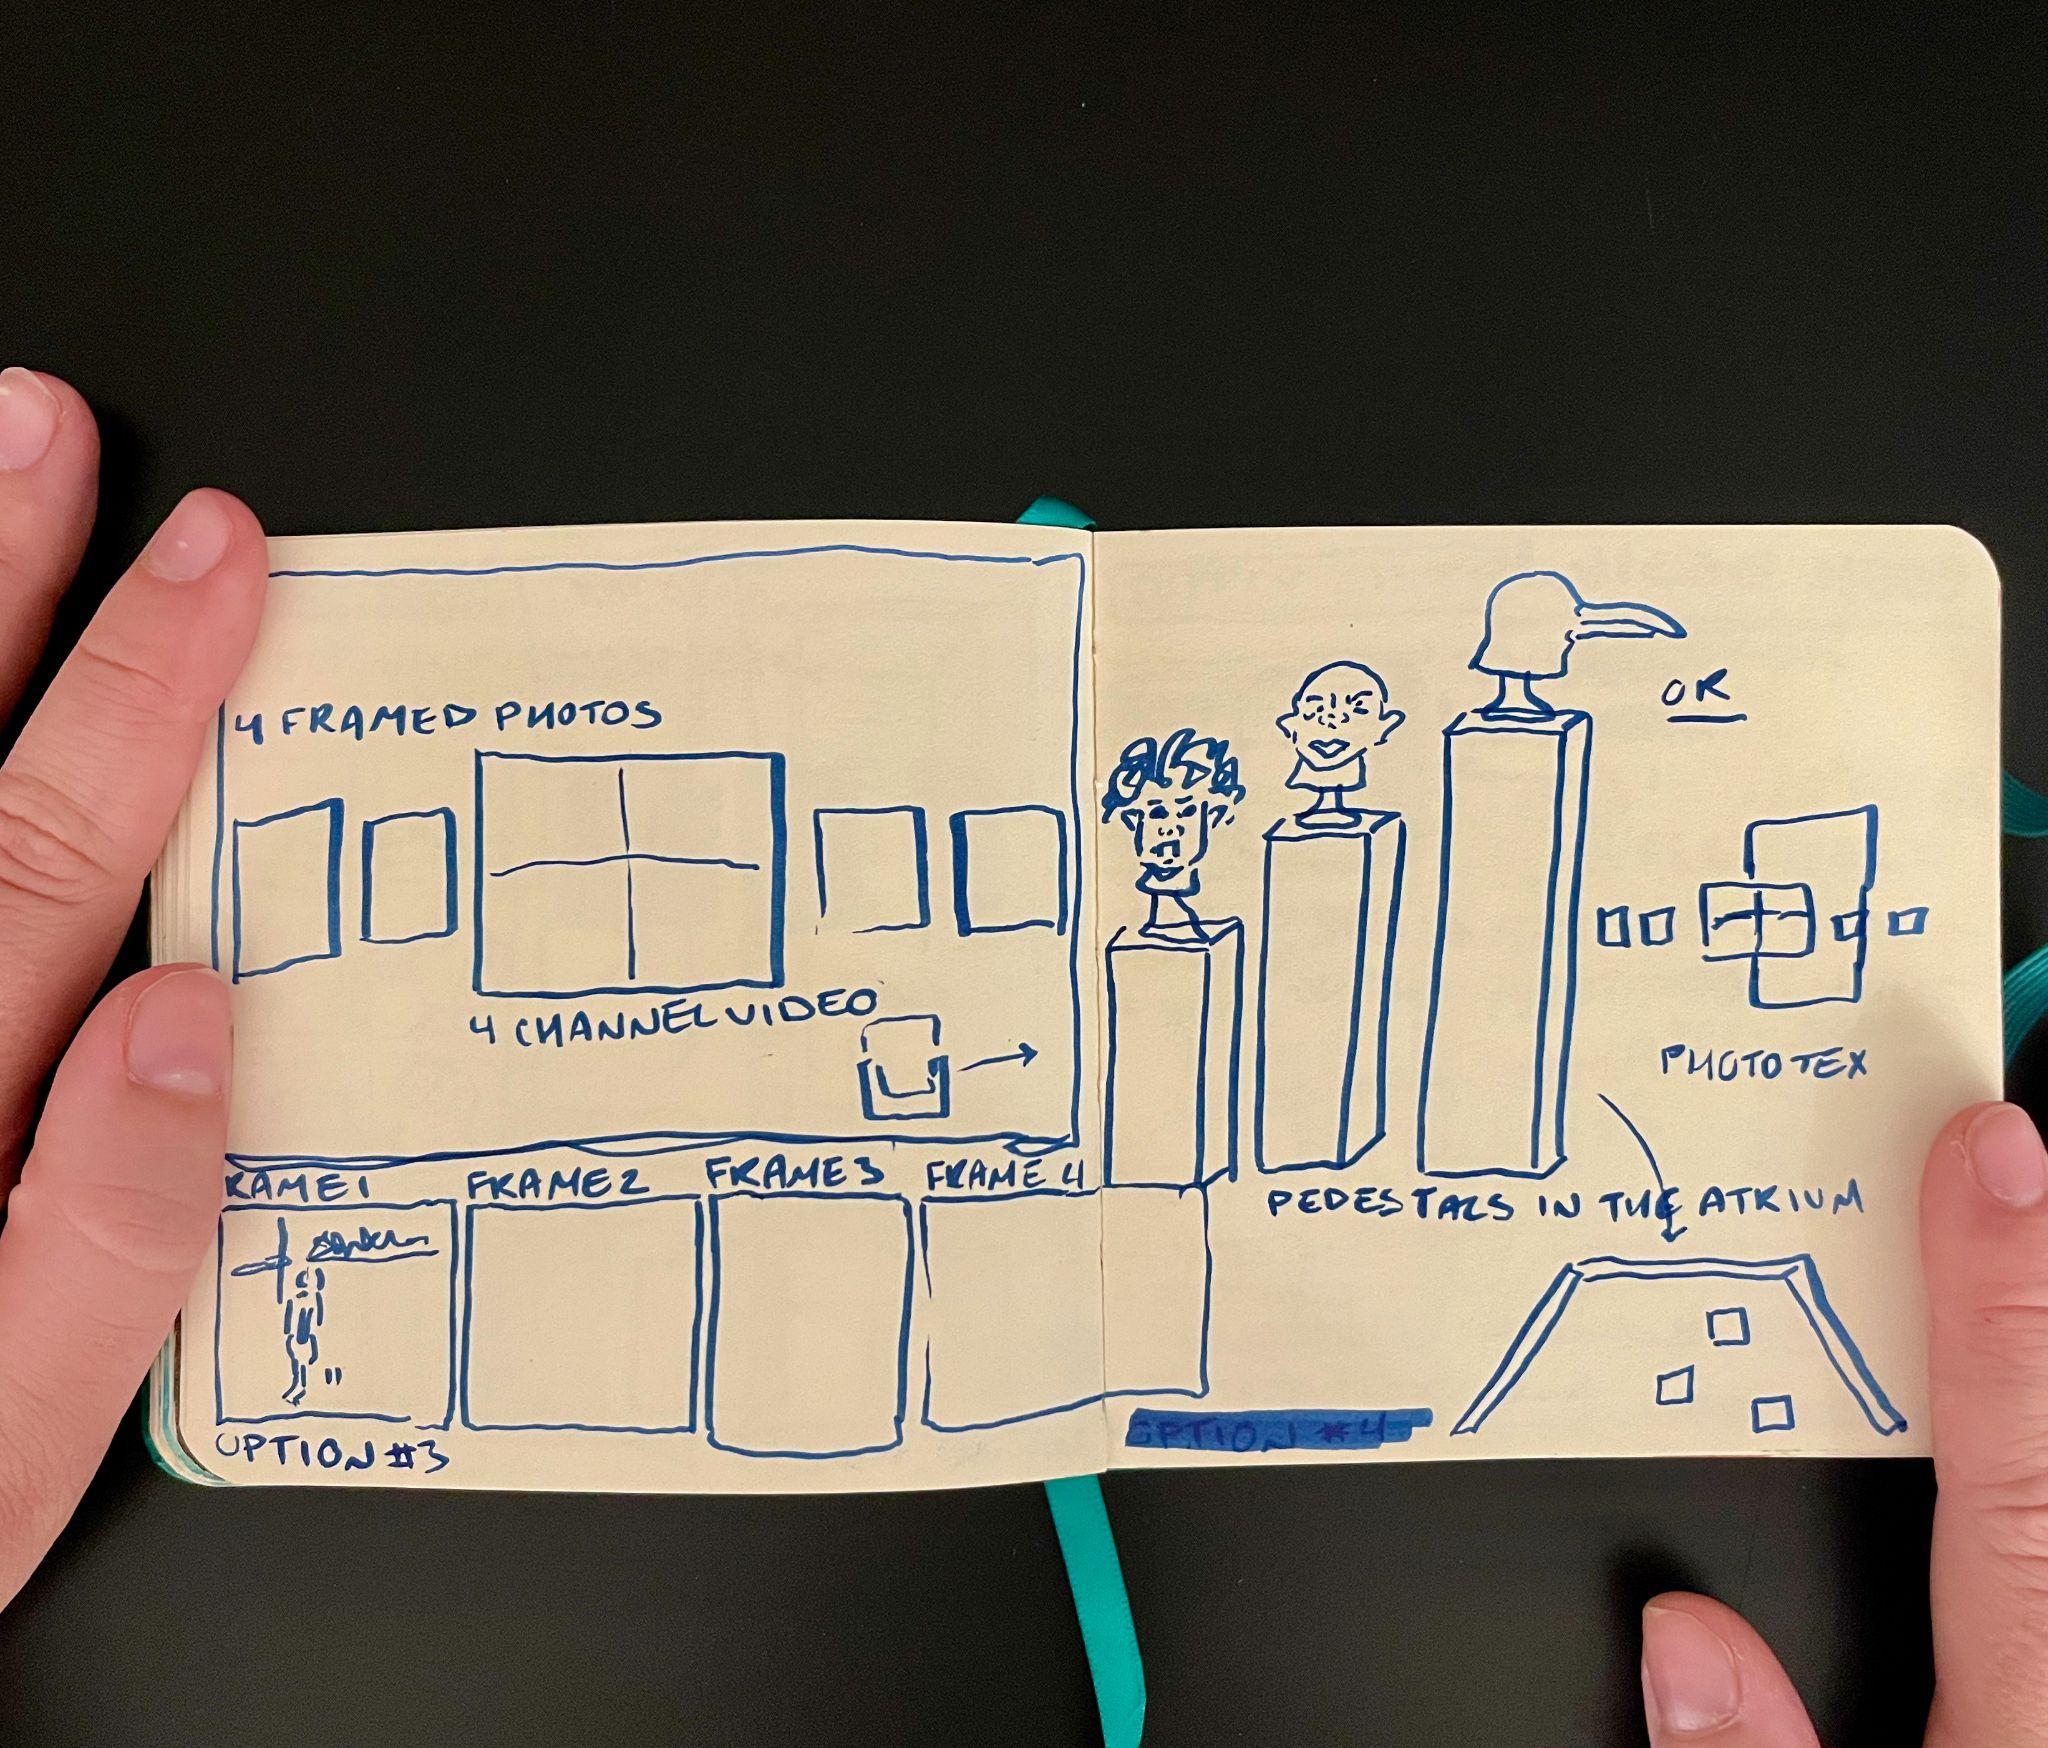 4 FRAMED PHOTOS
4 CHANNEL VIDEO
RAME 1
FRAME 2
FRAME 3
FRAME 4
"
OPTION #3
OR
PHOTO TEX
PEDESTALS IN THE ATRIUM
OPTION #4